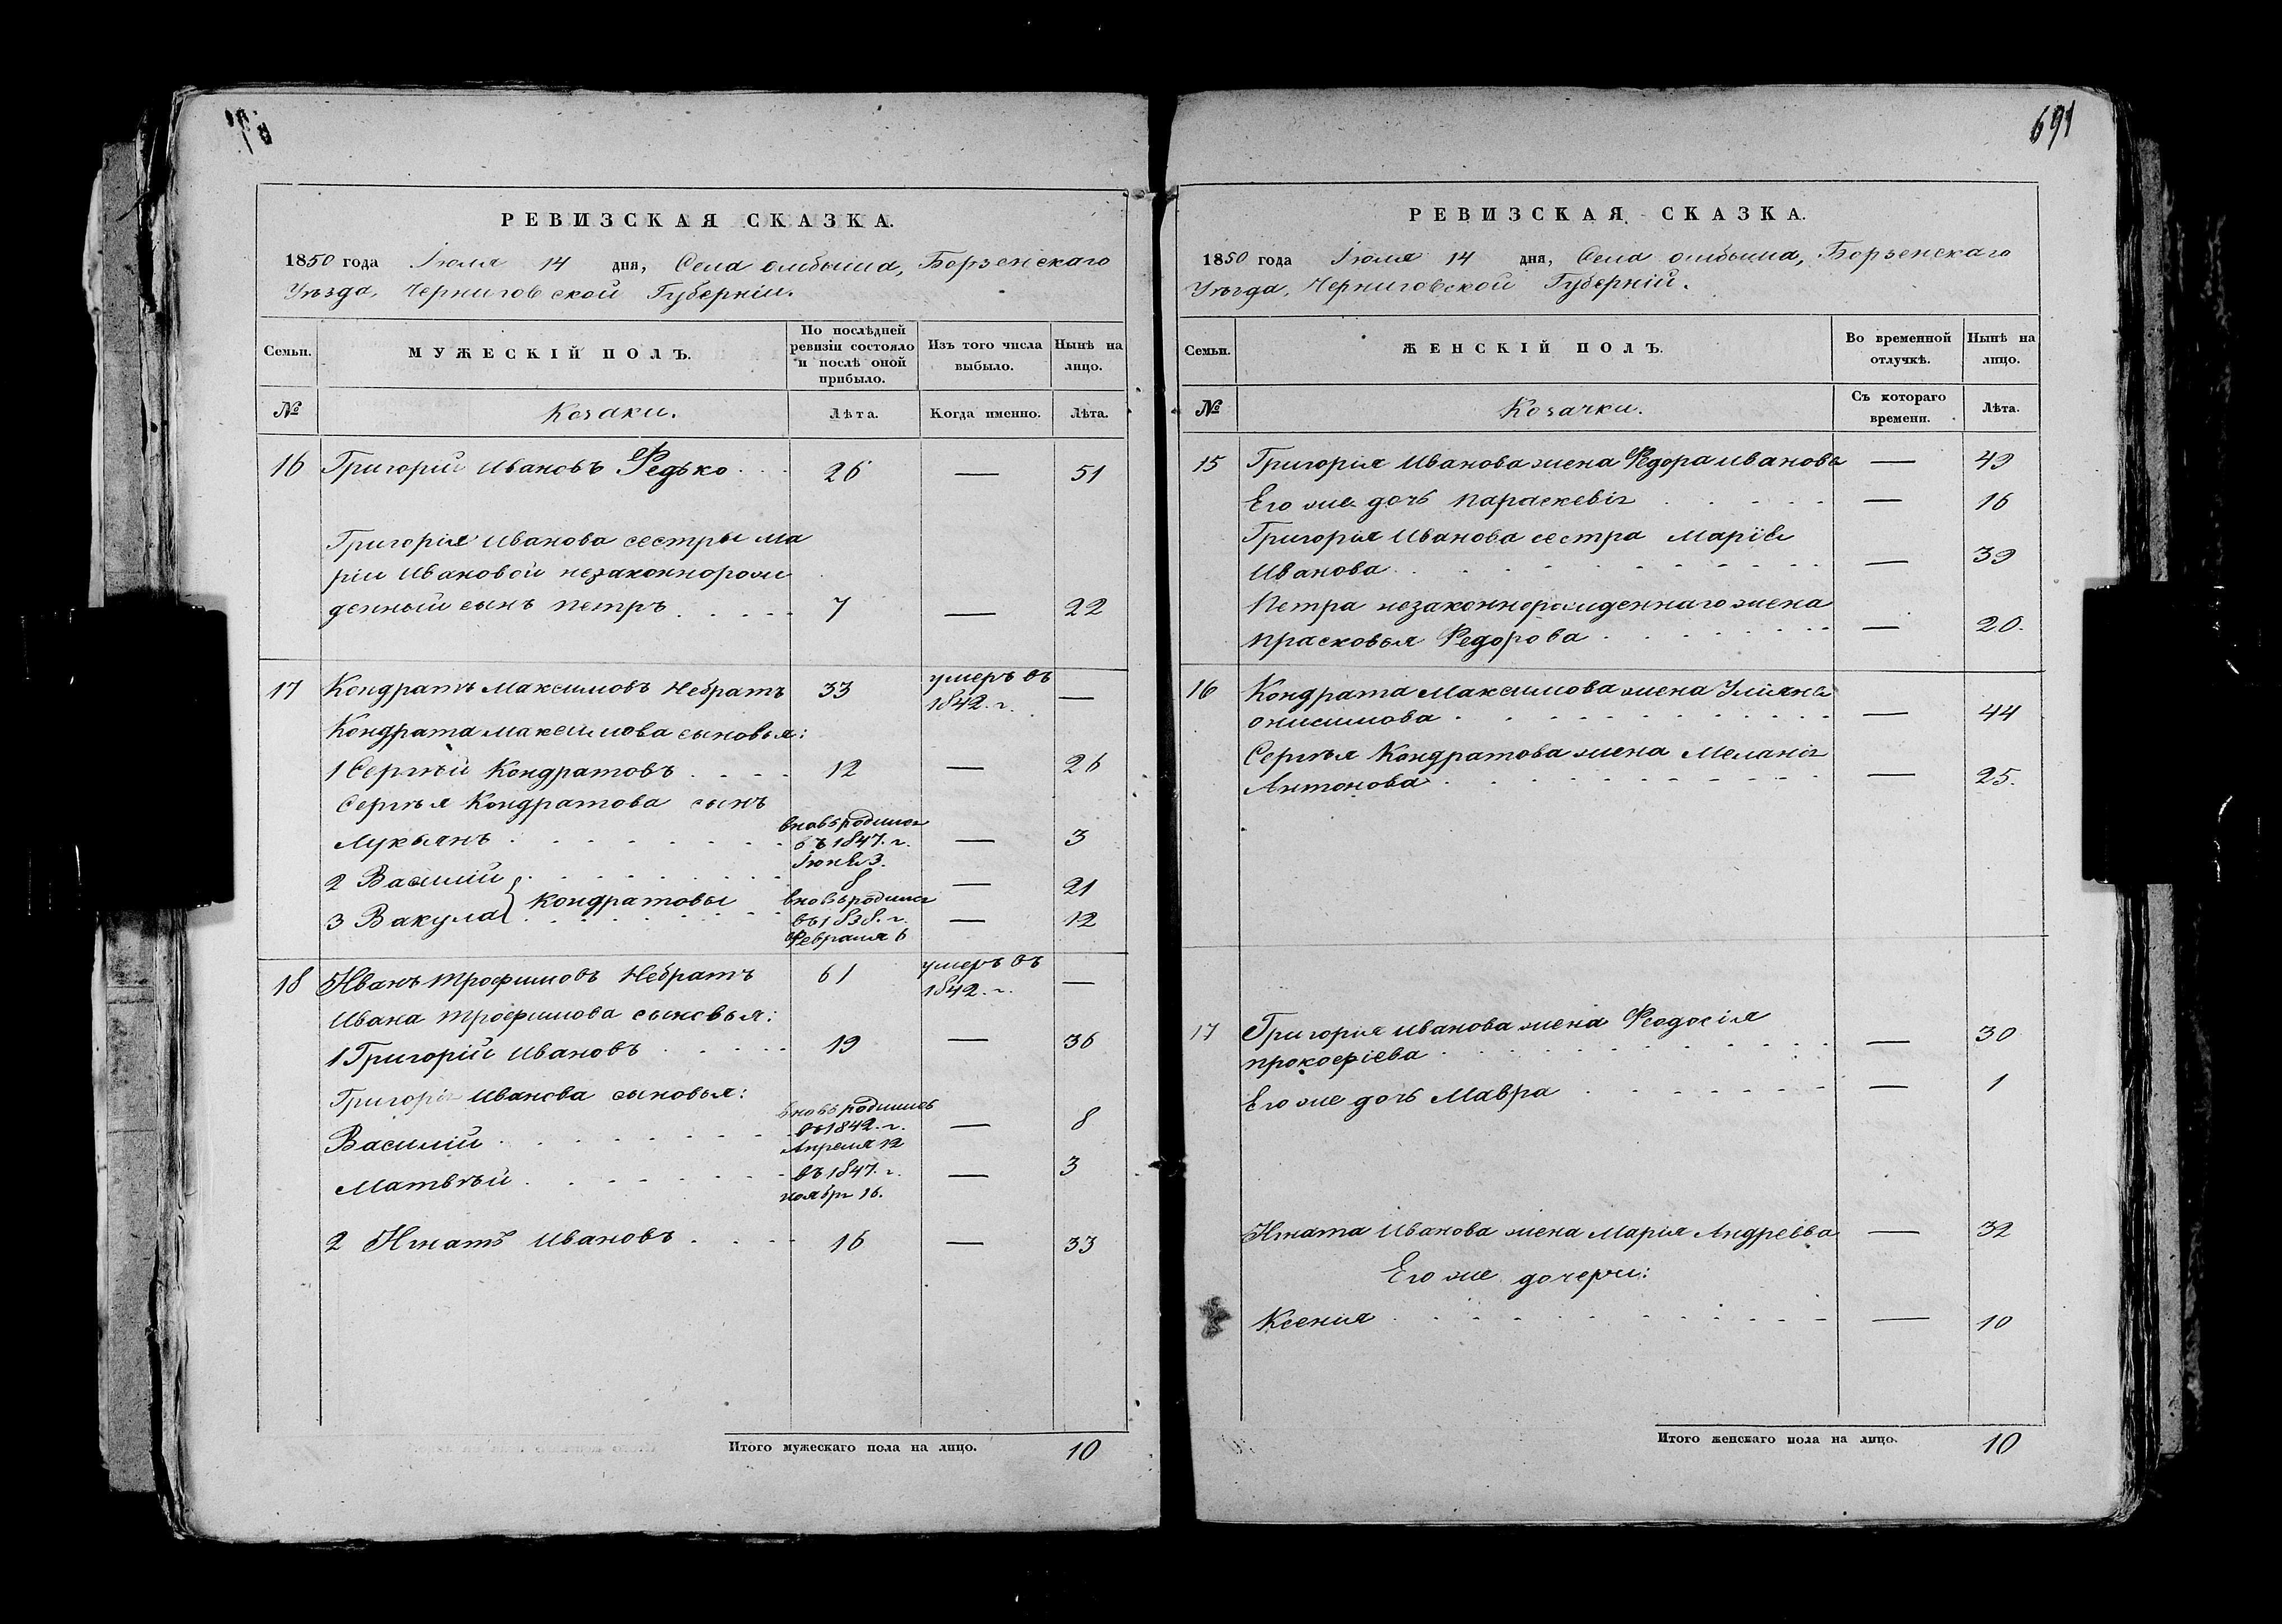 691
РЕВИЗСКАЯ СКАЗКА.
1850 года Іюля 14 дня, Села Омбыша, Борзенскаго
Уѣзда, Черниговской Губерніи.
Семьи.
МУЖЕСКІЙ ПОЛЪ.
По послѣдней ревизіи состояло и послѣ оной прибыло.
Изъ того числа выбыло.
Нынѣ на лицо.
№
Козаки.
Лѣта.
Когда именно.
Лѣта.
16 Григорій Ивановъ Федько . . . 26 — 51
Григорія Иванова сестры Ма
ріи Ивановой незаконнорож
денный сынъ Петръ . . . . . 7 — 22
17 Кондратъ Максимовъ Небратъ 33 умеръ въ 1842. г. —
Кондрата Максимова сыновья:
1 Сергѣй Кондратовъ . . . . 12 — 26
Сергѣя Кондратова сынъ
Лукьянъ . . . . . . . . вновь родился въ 1847. г. Іюня 3. — 3
2 Василій } Кондратовы 8 — 21
3 Вакула вновь родился въ 1838. г. Февраля 6 — 12
18 Иванъ Трофимовъ Небратъ 61 умеръ въ 1842. г. —
Ивана Трофимова сыновья:
1 Григорій Ивановъ . . . . . 19 — 36
Григорія Иванова сыновья:
Василій . . . . . . . . вновь родились въ 1842. г. Апреля 12 — 8
Матвѣй . . . . . . . . въ 1847. г. ноябр 16. — 3
2 Игнатъ Ивановъ . . . . 16 — 33
Итого мужескаго пола на лицо. 10
РЕВИЗСКАЯ СКАЗКА.
1850 года Іюля 14 дня, Села Омбыша, Борзенскаго
Уѣзда, Черниговской Губерній.
Семьи.
ЖЕНСКІЙ ПОЛЪ.
Во временной отлучкѣ.
Нынѣ на лицо.
№
Козачки.
Съ котораго времени.
Лѣта.
15 Григорія Иванова жена Федора Иванова — 49
Его же дочь Параскевія . . . . . — 16
Григорія Иванова сестра Марія
Иванова . . . . . . . . . . . — 39
Петра незаконнорожденнаго жена
Прасковья Федорова . . . . . . . . — 20.
16 Кондрата Максимова жена Ульяна
Онисимова . . . . . . . . . . . — 44
Сергѣя Кондратова жена Меланія
Антонова . . . . . . . . . . . — 25.
17 Григорія Иванова жена Феодосія
Прокофіева . . . . . . . . . . . — 30
Его же дочь Мавра . . . . . . . — 1
Игната Иванова жена Марія Андреева — 32
Его же дочери:
Ксенія . . . . . . . . . . . . — 10
Итого женскаго пола на лицо. 10